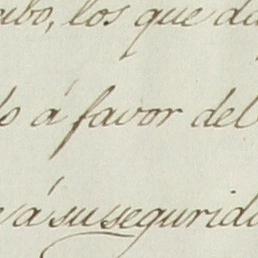 abo, los que d
á favor del
á su segurid